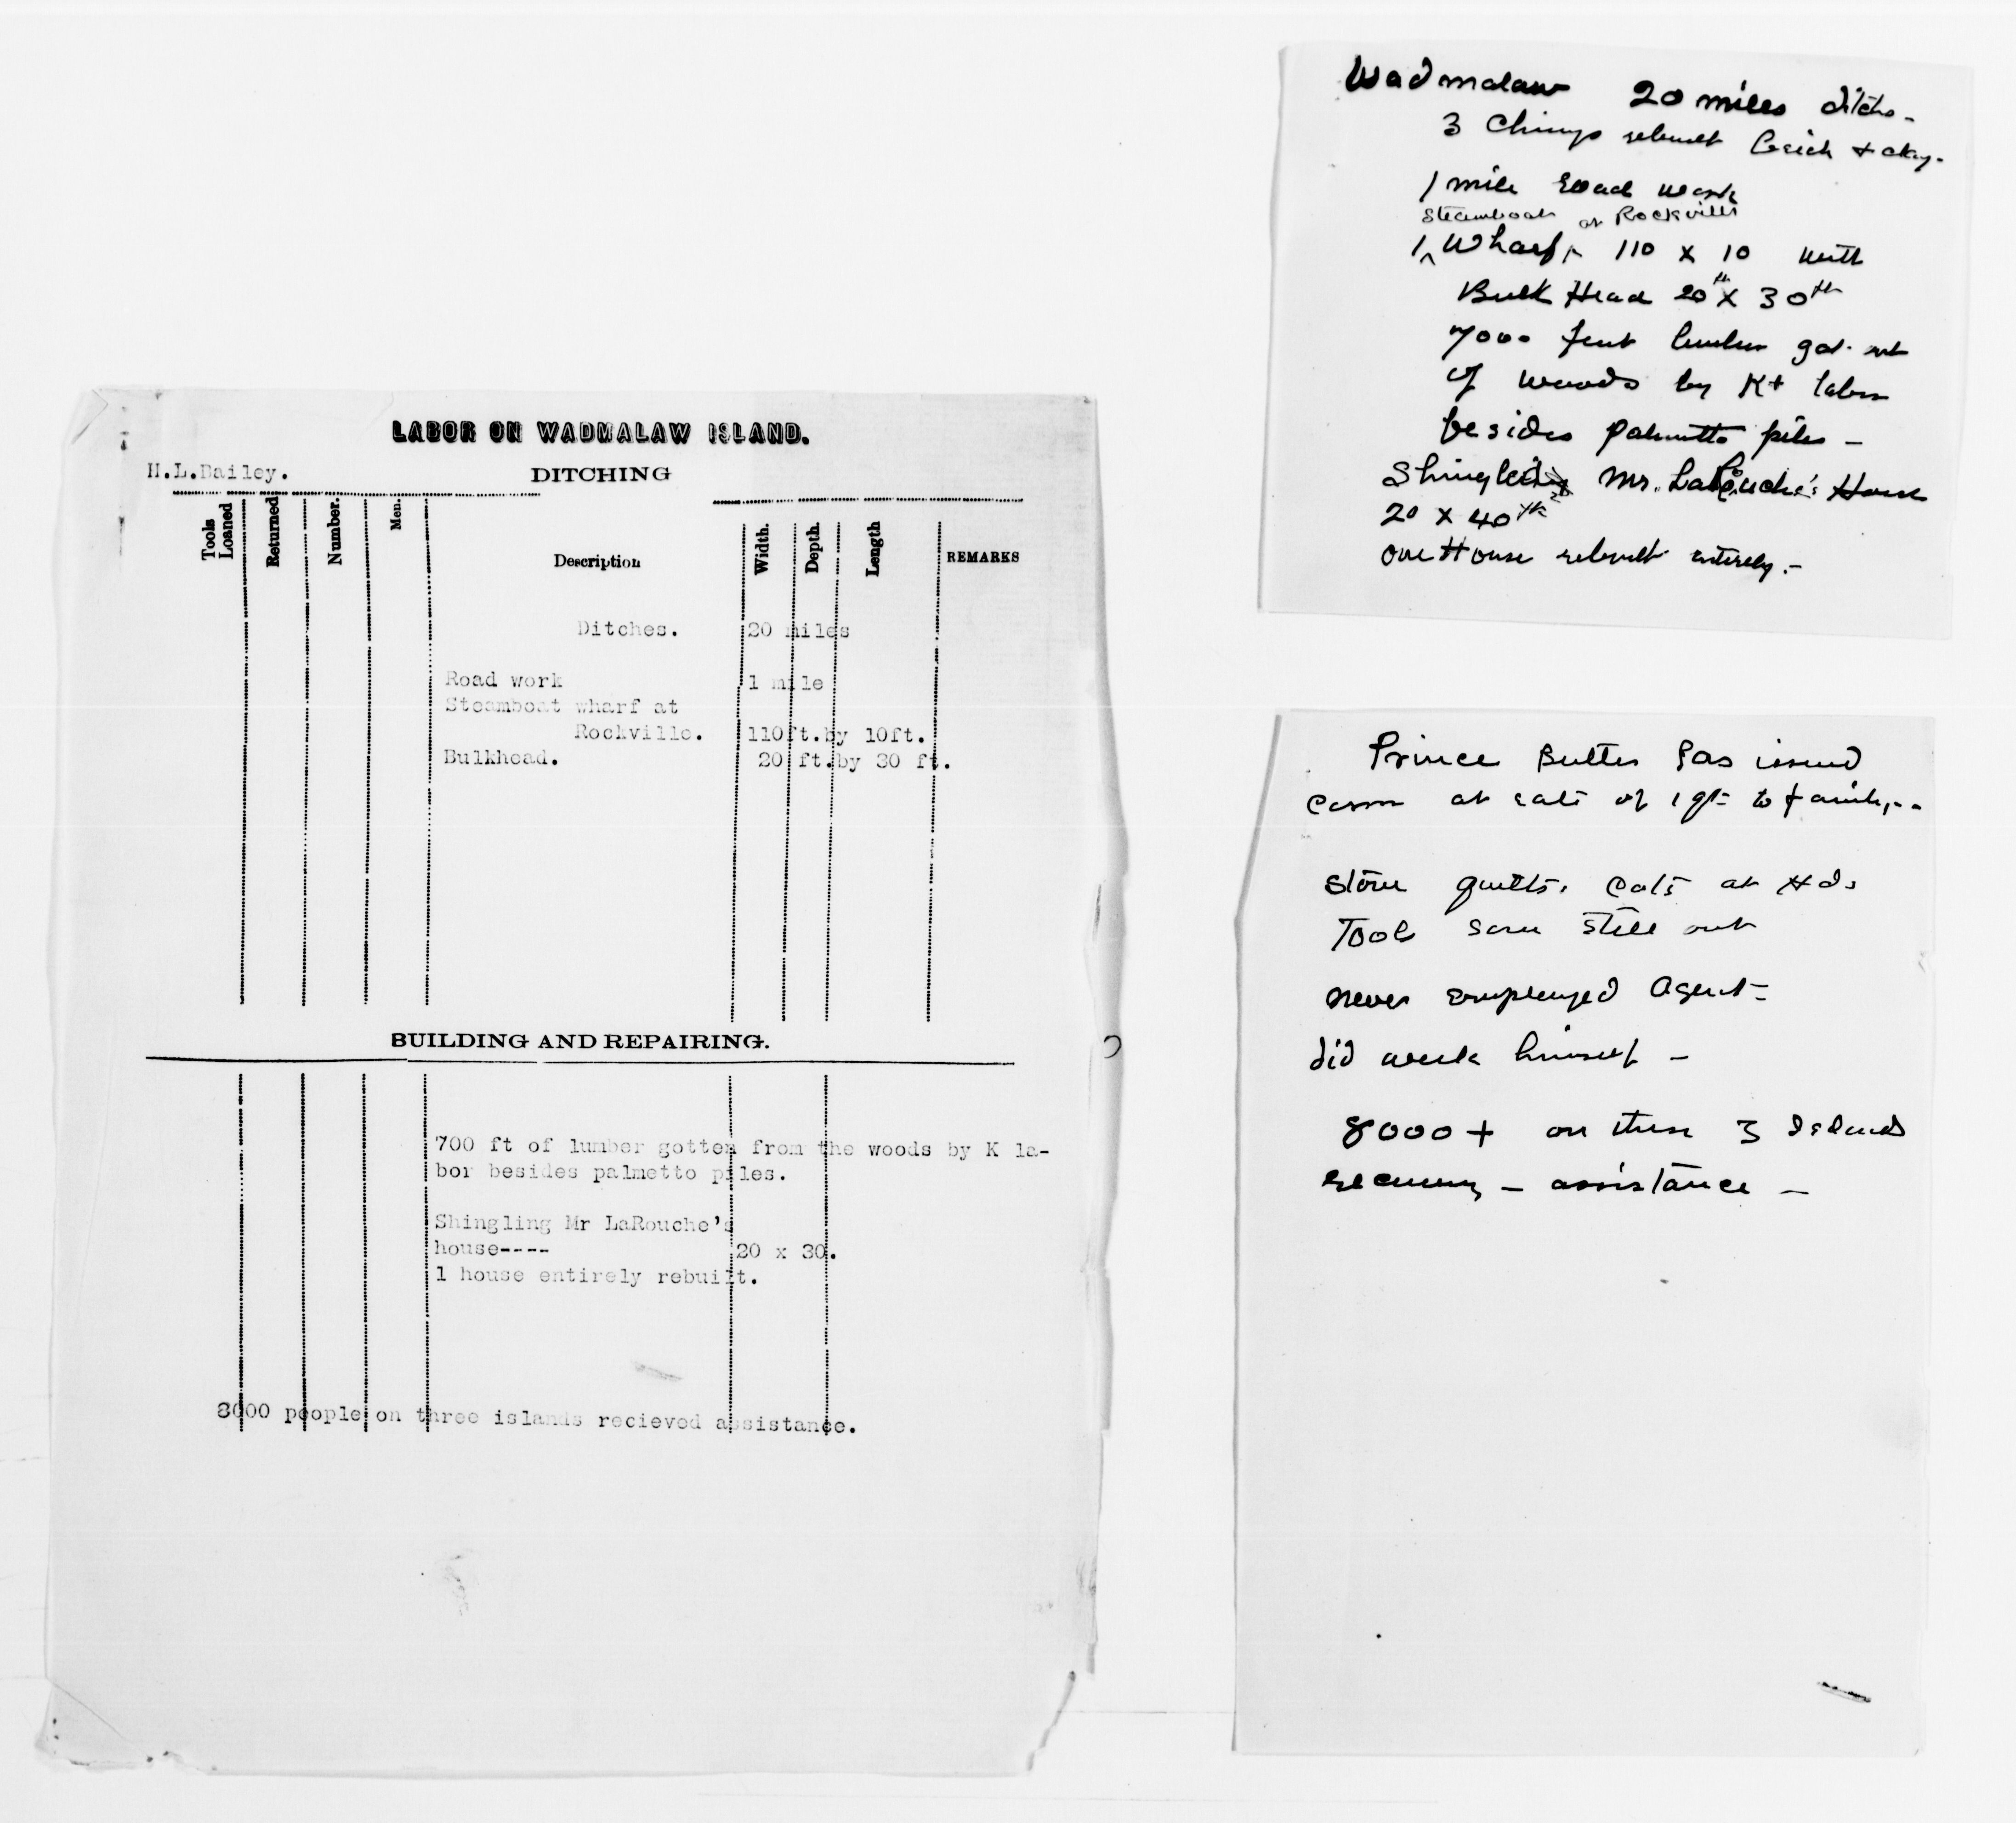 LABOR ON WADMALAW ISLAND.
H.L.Dailey.
DITCHING
Tools Loaned
Returned
Number.
Men.
Description
Width.
Depth.
Length
REMARKS
Ditches. 20 miles
Road work 1 mile
Steamboat wharf at
Rockville. 110ft.by 10ft.
Bulkhead. 20 ft.by 30 ft.
BUILDING AND REPAIRING.
700 ft of lumber gotten from the woods by K la-
bor besides palmetto piles.
Shingling Mr LaRouche's
house---- 20 x 30.
1 house entirely rebuilt.
8000 people on three islands recieved assistance.
Wadmalaw 20 miles ditchs-
3 Chimys rebuilt brick & clay.
1 mile road work
Steamboat at Rockville
1 Wharf 110 x 10 with
Bulk Head 20 ft x 30 ft
7000 feet lumber got out
of woods by K+ labor
besides palmetto piles -
Shingled Mr. LaRouche's House
20 x 40 ft
one House rebuilt entirely.-
Prince Butler has issued
Corn at rate of 1 qt to family,--
Stove quilts, Cots at Hds
Tools some still out
never employed Agent-
did work himself -
8000 + on these 3 Islands
receiving - assistance -